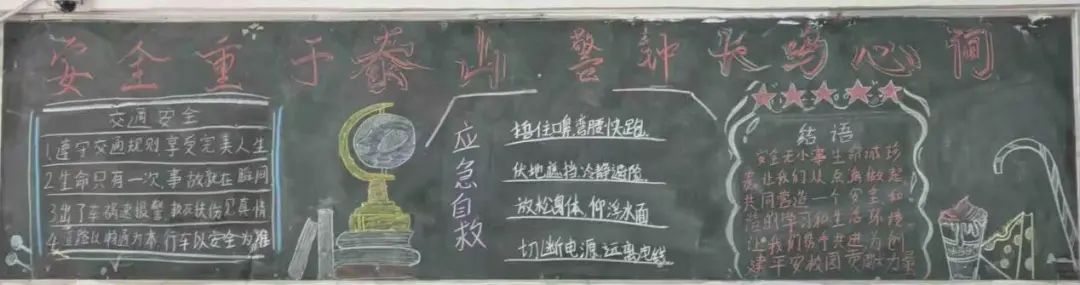 安全重于泰山 警钟长鸣心间
交通安全
1.遵守交通规则,享受完美人生
2.生命只有一次,事故就在瞬间
3.出了车祸速报警,救死扶伤见真情
4.道路以畅通为本,行车以安全为准
应急自救
捂住口鼻,弯腰快跑
伏地遮挡,冷静避险
放松身体,仰浮水面
切断电源,远离电线
结语
安全无小事生命诚珍
贵,让我们从点滴做起
共同营造一个安全和
谐的学习和生活环境
让我们携手共进为创
建平安校园贡献力量